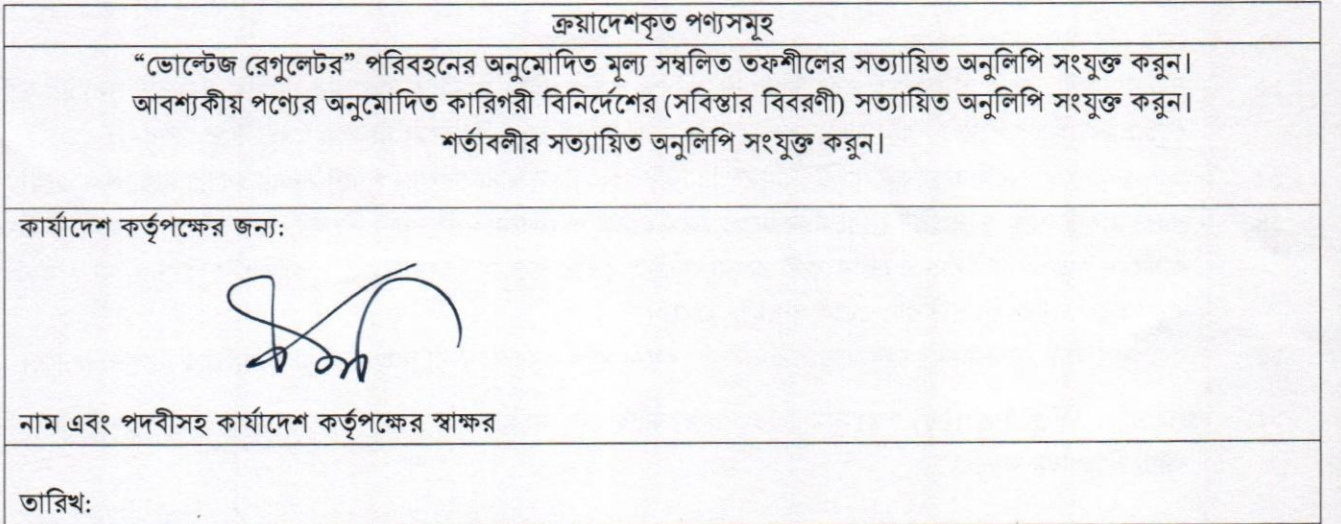 ক্রয়াদেশকৃত পণ্যসমূহ
“ভোল্টেজ রেগুলেটর” পরিবহনের অনুমোদিত মূল্য সম্বলিত তফশীলের সত্যায়িত অনুলিপি সংযুক্ত করুন।
আবশ্যকীয় পণ্যের অনুমোদিত কারিগরী বিনির্দেশের (সবিস্তার বিবরণী) সত্যায়িত অনুলিপি সংযুক্ত করুন।
শর্তাবলীর সত্যায়িত অনুলিপি সংযুক্ত করুন।
কার্যাদেশ কর্তৃপক্ষের জন্য:
নাম এবং পদবীসহ কার্যাদেশ কর্তৃপক্ষের স্বাক্ষর
তারিখ: